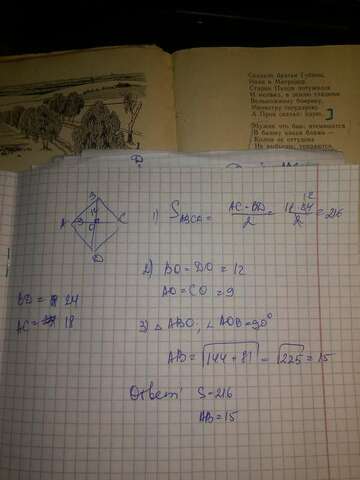 Сказали братья Губины,
Иван и Митродор.
Старик Пахом потужился
И молвил, в землю глядючи:
Вельможному боярину,
Министру государеву.
А Пров сказал: царю.
Мужик что бык: втемяшится
В башку какая блажь —
Колом ее оттудова
Не выбьешь: упираются,
B
A
C
D
12
9
O
BD = 24
AC = 18
1) S ABCD = AC · BD / 2 = 18 · 24 / 2 = 216
12
2) BO = DO = 12
AO = CO = 9
3) △ ABO, ∠ AOB = 90°
AB = √144 + 81 = √225 = 15
Ответ: S = 216
AB = 15